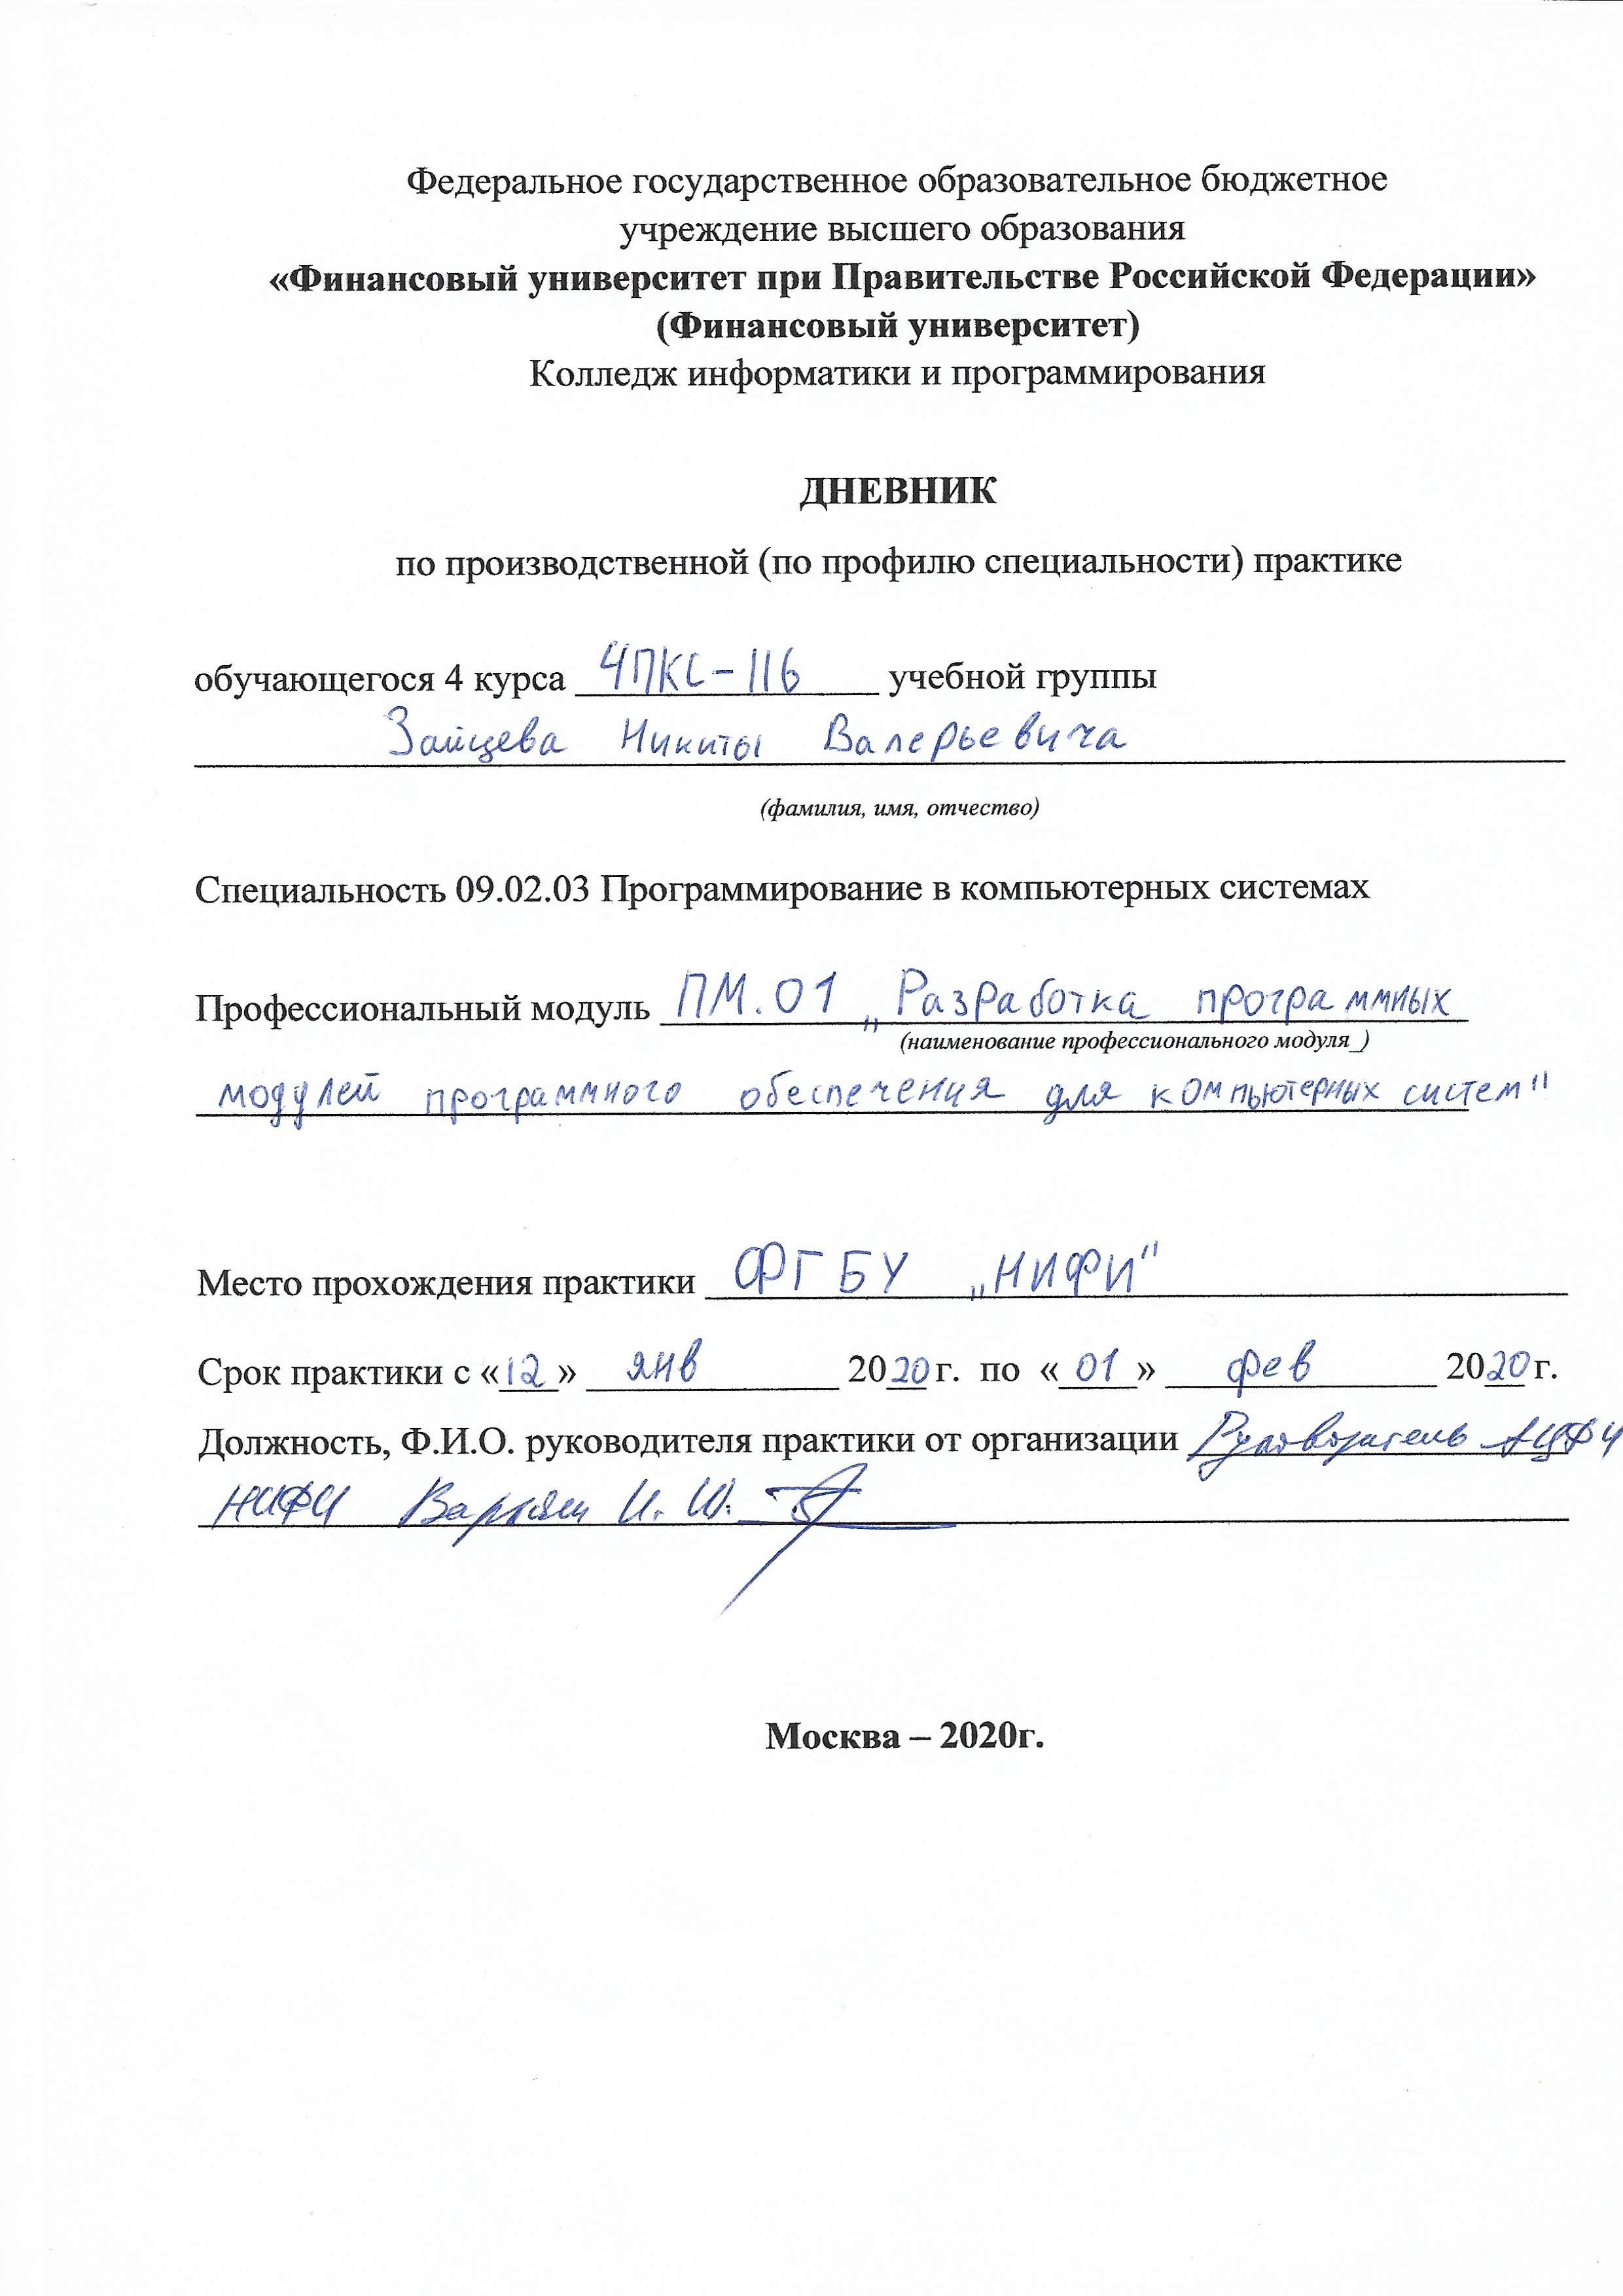 Федеральное государственное образовательное бюджетное
учреждение высшего образования
«Финансовый университет при Правительстве Российской Федерации»
(Финансовый университет)
Колледж информатики и программирования
ДНЕВНИК
по производственной (по профилю специальности) практике
обучающегося 4 курса 4ПКС-116 учебной группы
Зайцева Никиты Валерьевича
(фамилия, имя, отчество)
Специальность 09.02.03 Программирование в компьютерных системах
Профессиональный модуль ПМ.01 „Разработка программных
(наименование профессионального модуля_)
модулей программного обеспечения для компьютерных систем"
Место прохождения практики ФГБУ „НИФИ"
Срок практики с «12» янв 2020 г. по «01» фев 2020 г.
Должность, Ф.И.О. руководителя практики от организации Руководитель
НИФИ И. Ш.
Москва – 2020г.